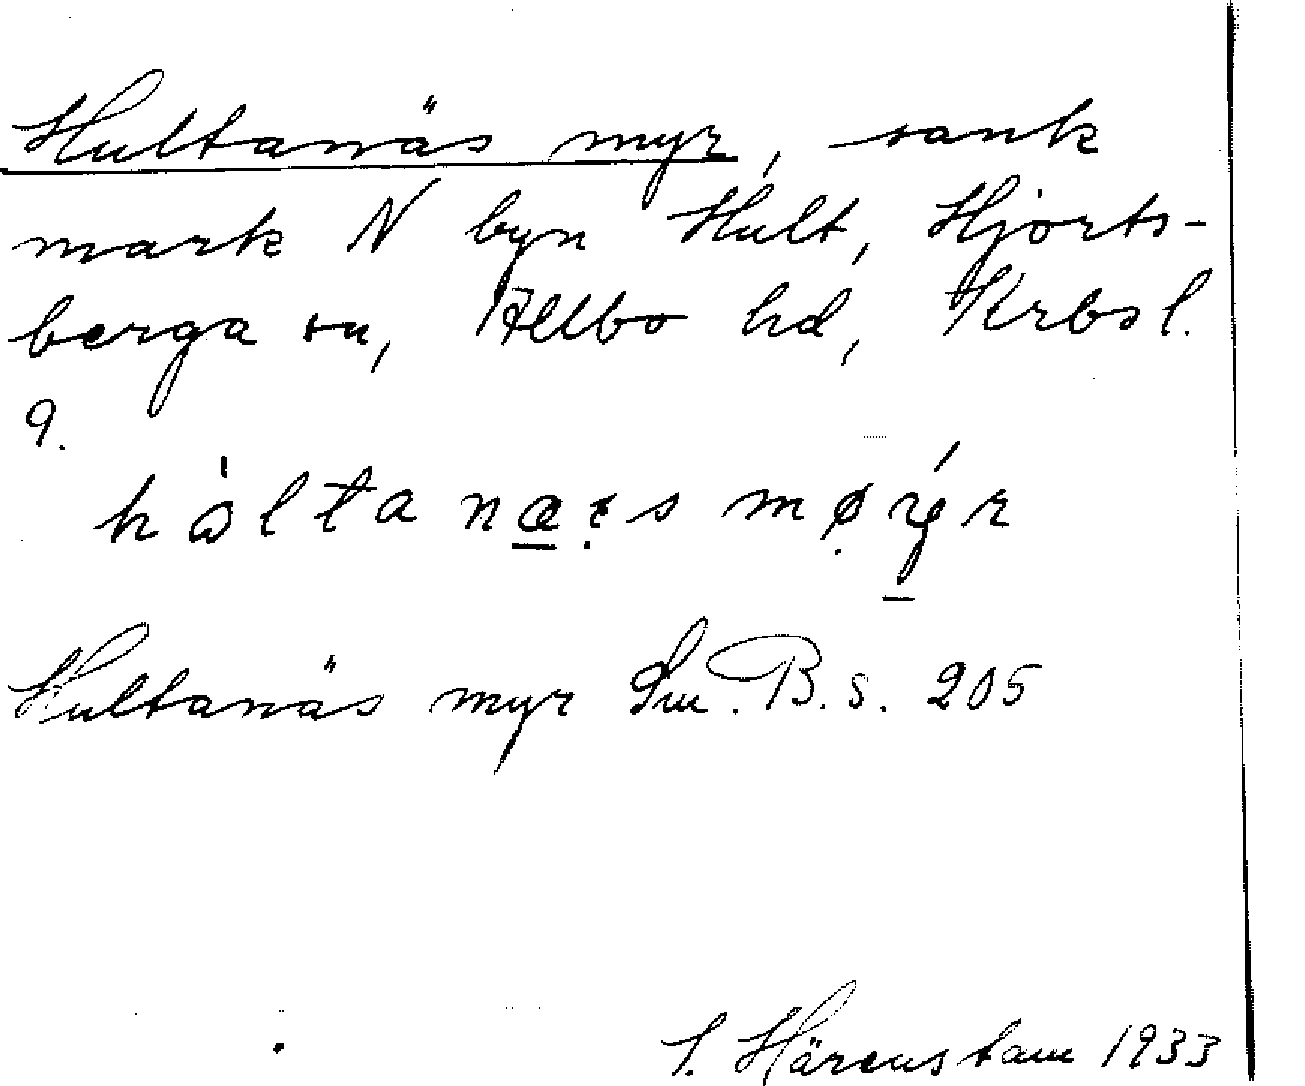 Hultanäs myr, sank
mark N byn Hult, Hjorts-
berga sn, Allbo hd, Krbsl.
9.
Hultanäs myr Sm. B. s. 205
S. Härenstam 1933